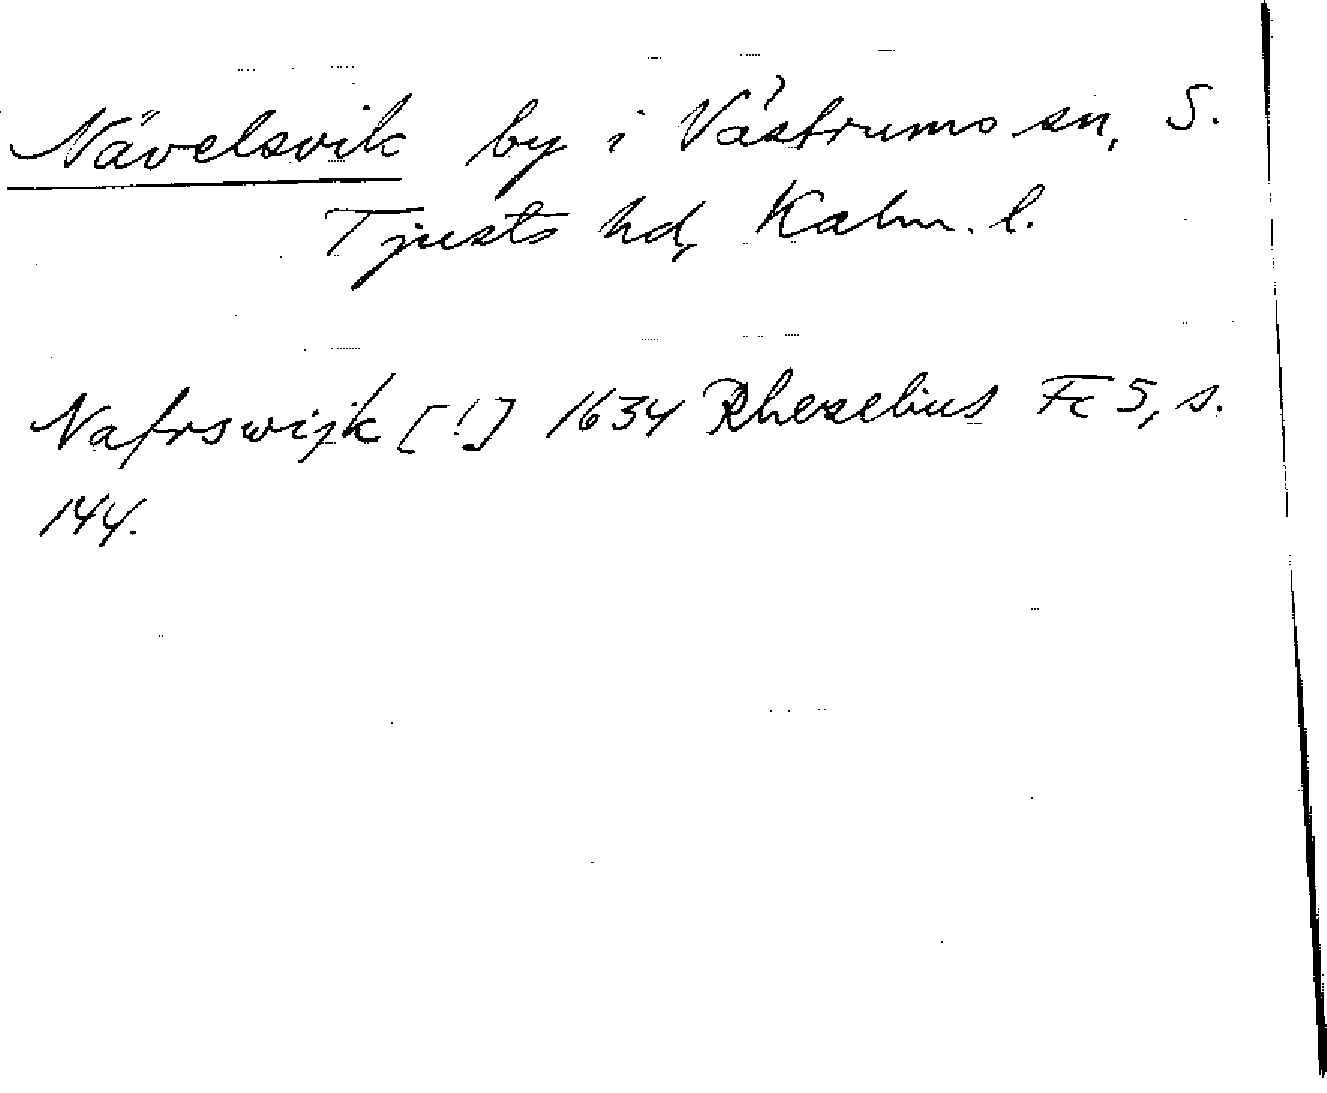 Nävelsvik by i Västrums sn, S.
Tjusts hd, Kalm. l.
Nafrswijk [!] 1634 Rhezelius Fc 5, s.
144.